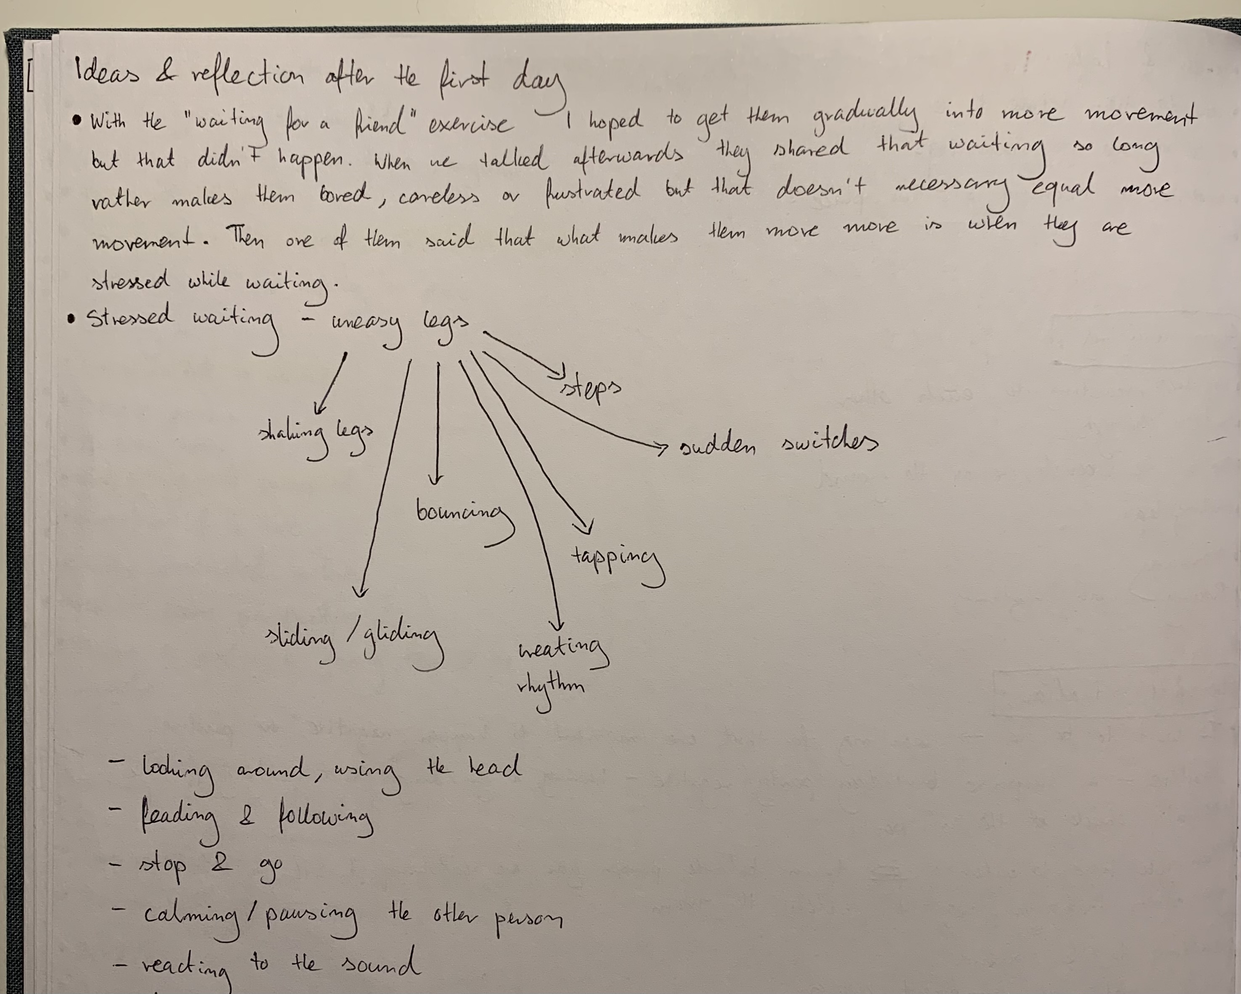 Ideas & reflection after the first day
• With the "waiting for a friend" exercise I hoped to get them gradually into more movement
but that didn't happen. When we talked afterwards they shared that waiting so long
rather makes them bored, careless or frustrated but that doesn't necessary equal more
movement. Then one of them said that what makes them more move is when they are
stressed while waiting.
• Stressed waiting – uneasy legs
steps
shaking legs
sudden switches
bouncing
tapping
sliding / gliding
creating
rhythm
– looking around, using the head
– leading & following
– stop & go
– calming / pausing the other person
– reacting to the sound